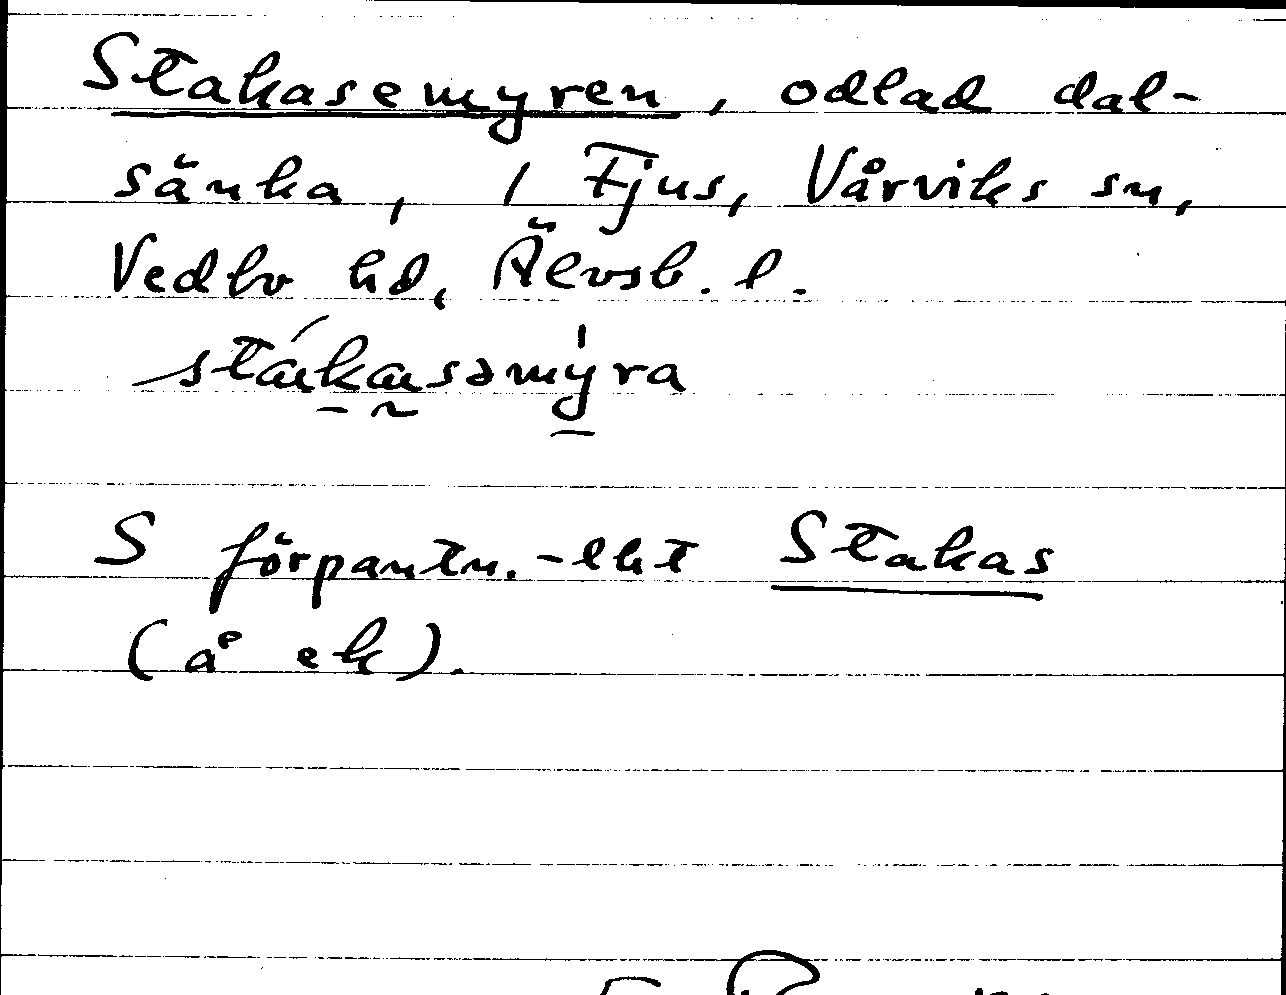 Stakasemyren, odlad dal-
sänka, 1 Fjus, Vårviks sn,
Vedbo hd, Älvsb. l.
stákasəmýra
S förpantn.-lht Stakas
(å ek).